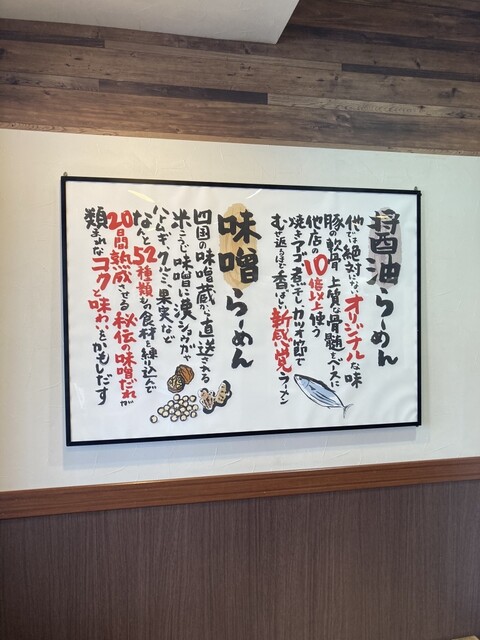 醤油らーめん
他では絶対にないオリジナルな味
豚の軟骨、上質な骨髄をベースに
他店の10倍以上使う
焼きアゴ、煮干し、カツオ節で
むせ返るほど香ばしい新感覚ラーメン
味噌らーめん
四国の味噌蔵から直送される
米こうじ味噌に漢ショウガや
ハトムギ、クルミ、果実など
なんと52種類もの食材を練り込んで
20日間熟成させる秘伝の味噌だれが
類まれなコクと味わいをかもしだす